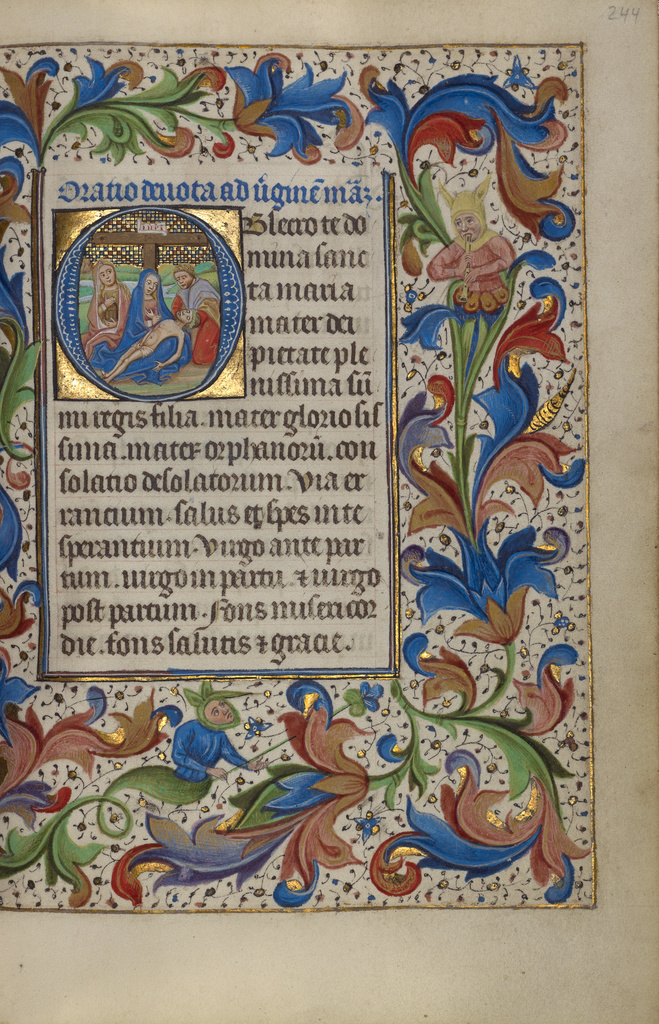 244
Oratio deuota ad ũginẽ mãꝫ.
INRI
Obsecro te do
mina sanc
ta maria
mater dei
pietate ple
nissima sũ
mi regis filia. mater gloriosis
sima. mater orphanorũ. con
solatio desolatorum. Via er
rancium. salus et spes in te
sperantium. Virgo ante par
tum. uirgo in partu ⁊ uirgo
post partum. Fons misericor
die. fons salutis ⁊ gracie.